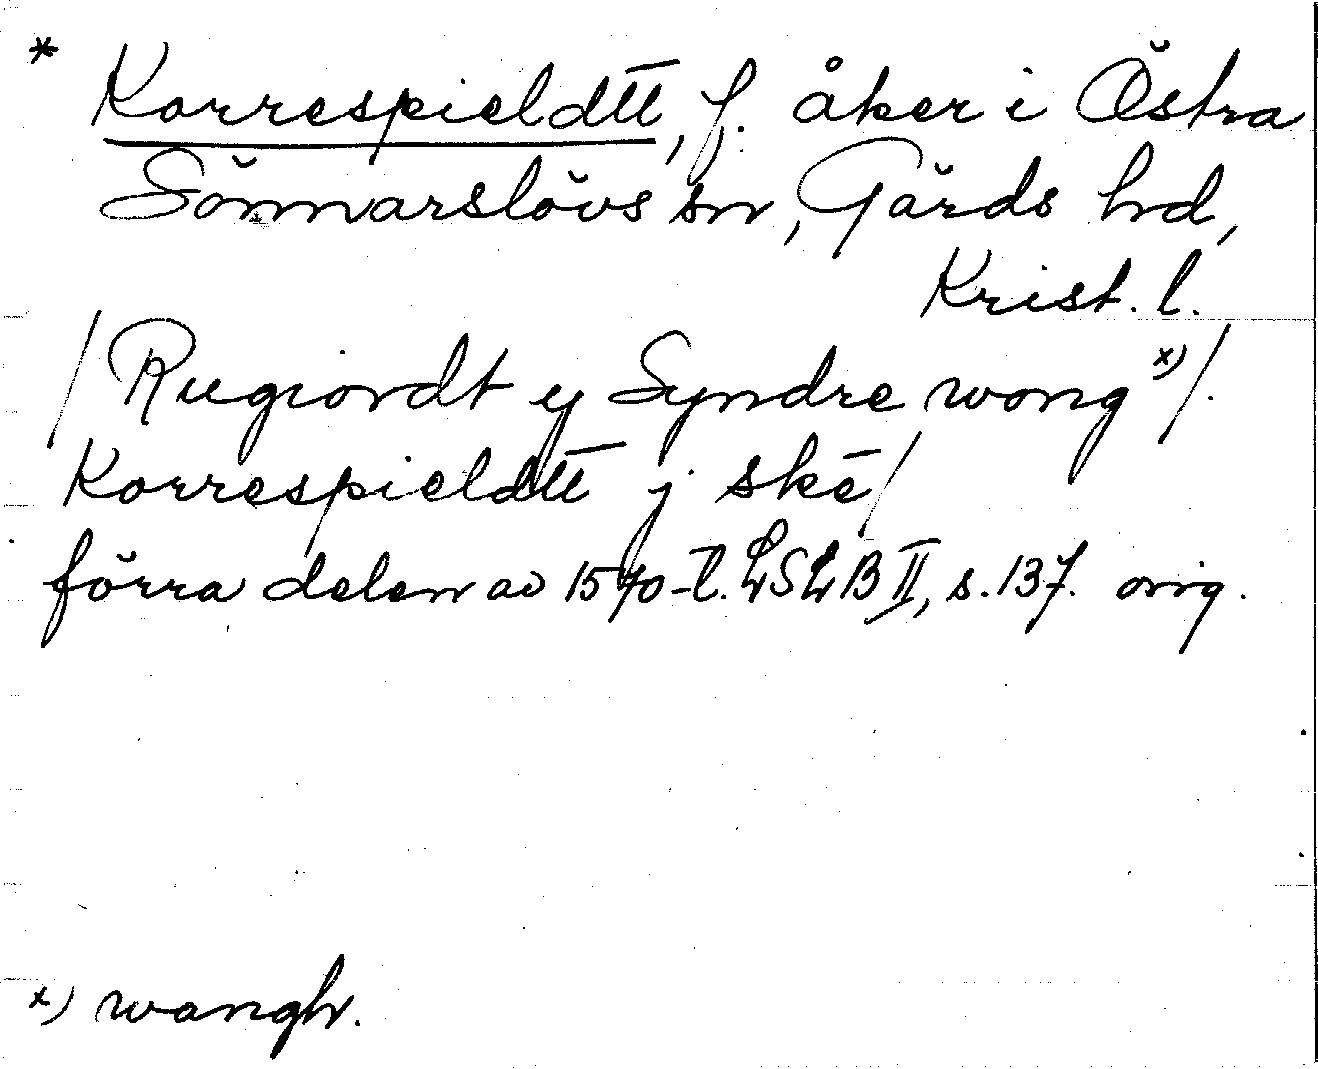 * Korrespieldtt̅, f. åker i Östra
Sönnarslövs sn, Gärds hd,
Krist. l.
/ Rugiordt ij Syndre wong x) /.
Korrespieldtt̅ j skē /
förra delen av 1570-t. LSLB II, s. 137. orig.
x) wangh.